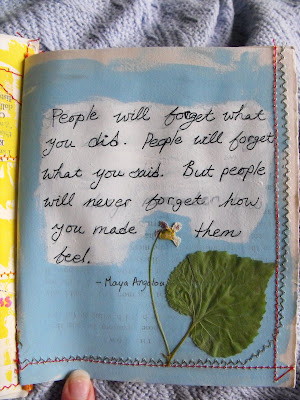 People will forget what
you did. People will forget
what you said. But people
will never forget how
you made them
feel.
- Maya Angelou